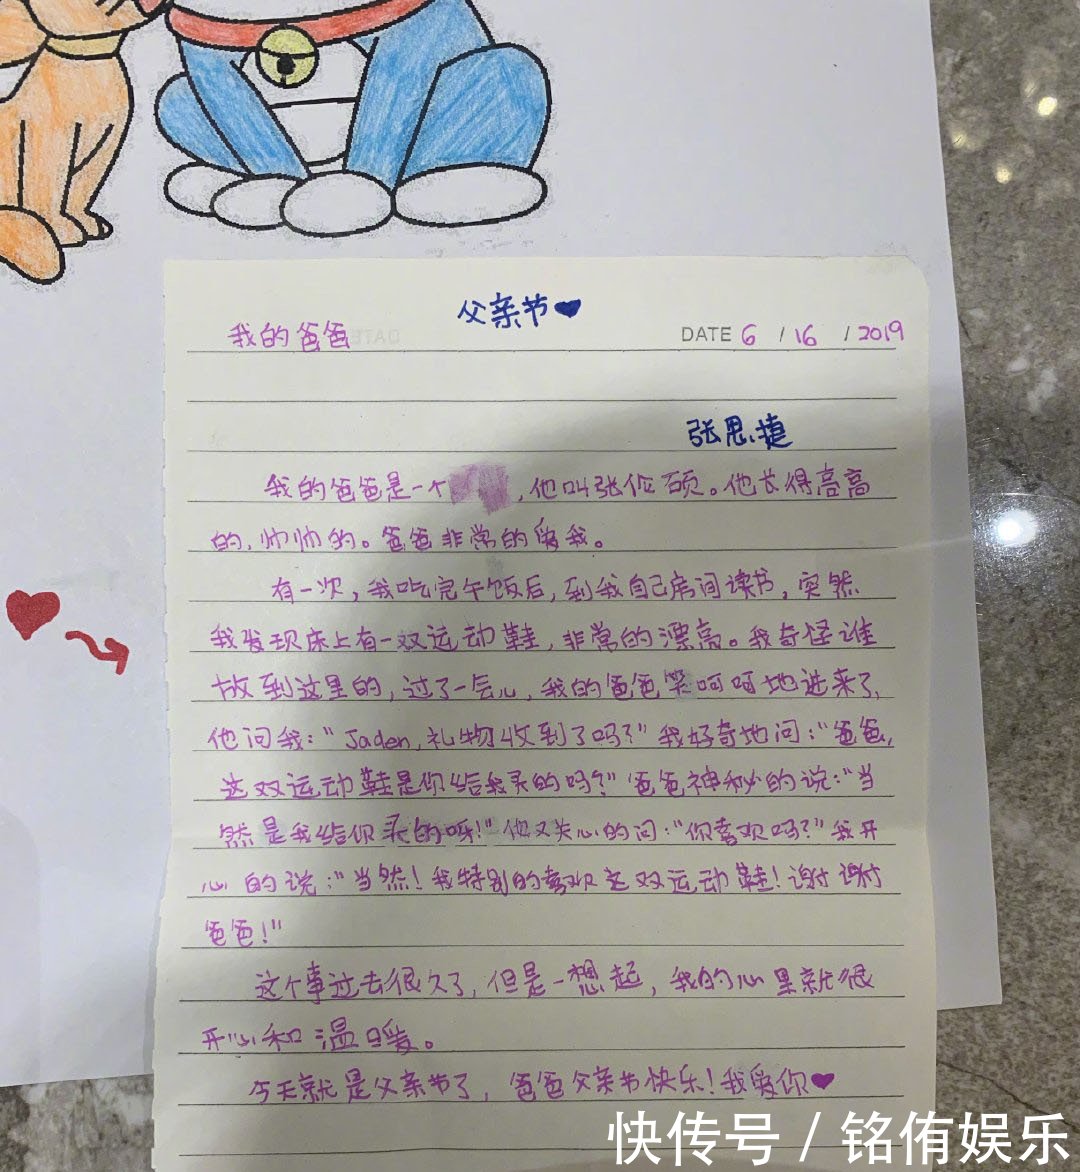 父亲节
我的爸爸
DATE 6 / 16 / 2019
张思捷
我的爸爸是一个，他叫张伦硕。他长得高高
的，帅帅的。爸爸非常的爱我。
有一次，我吃完午饭后，到我自己房间读书，突然
我发现床上有一双运动鞋，非常的漂亮。我奇怪谁
放到这里的，过了一会儿，我的爸爸笑呵呵地进来了，
他问我：“Jaden，礼物收到了吗？”我好奇地问：“爸爸，
这双运动鞋是你给我买的吗？”爸爸神秘的说：“当
然是我给你买的呀！”他又关心的问：“你喜欢吗？”我开
心的说：“当然！我特别的喜欢这双运动鞋！谢谢
爸爸！”
这个事过去很久了，但是一想起，我的心里就很
开心和温暖。
今天就是父亲节了，爸爸父亲节快乐！我爱你
快传号 / 铭侑娱乐